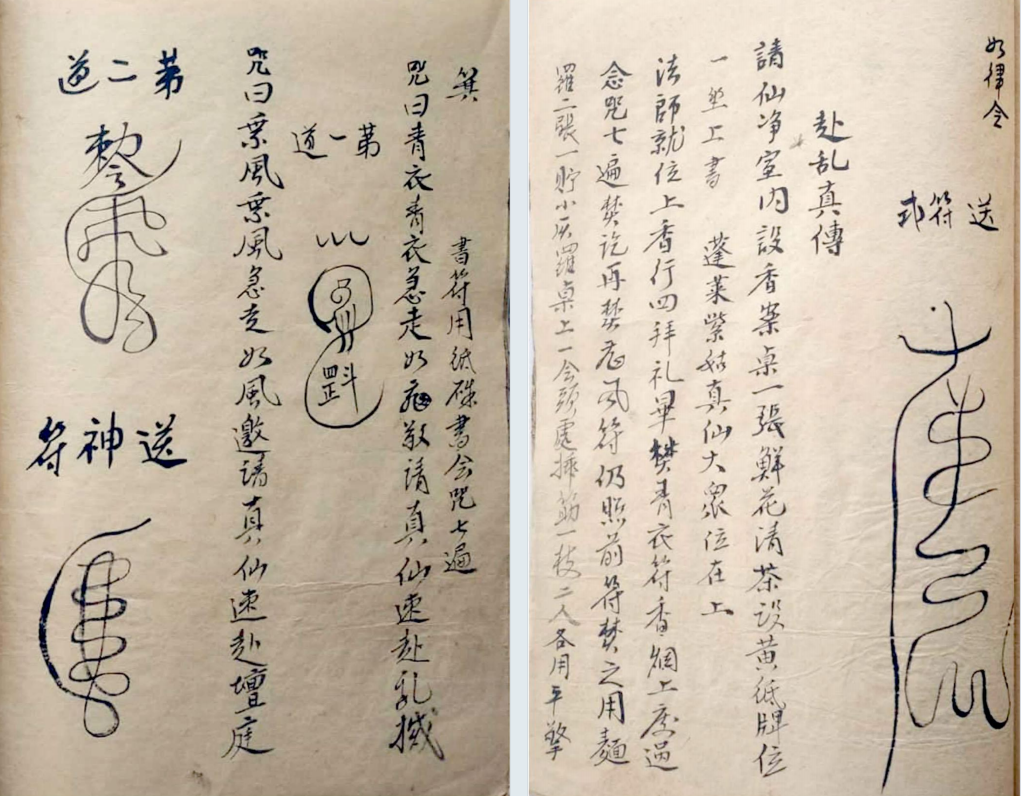 如律令
送符式
赴乱真傳
請仙净室内設香案桌一張鮮花清茶設黄纸牌位
一坐上書 蓬莱紫姑真仙大衆位在上
法師就位上香行四拜礼畢焚青衣符香烟上度過
念咒七遍焚讫再焚風符仍照前符焚之用麵
羅二張一貯小灰羅桌上一会頭處插筯一枝二人各用平擎
箕 書符用纸硃書会咒七遍
咒曰青衣青衣急走如敬請真仙速赴乱
第一道
咒曰乗風乗風急走如風邀請真仙速赴壇庭
第二道
送神符